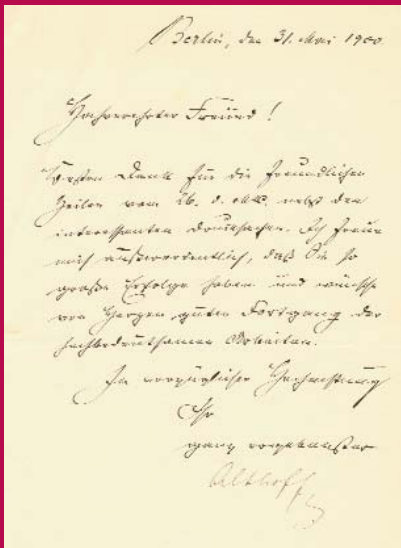 Berlin, den 31. Mai 1900
Hochverehrter Freund!
Besten Dank für die freundlichen
Zeilen vom 26. d. Mts. nebst den
interessanten Drucksachen. Ich freue
mich außerordentlich, daß Sie so
große Erfolge haben und wünsche
von Herzen guten Fortgang der
hochbedeutsamen Arbeiten.
In vorzüglicher Hochachtung
Ihr
ganz ergebenster
Althoff